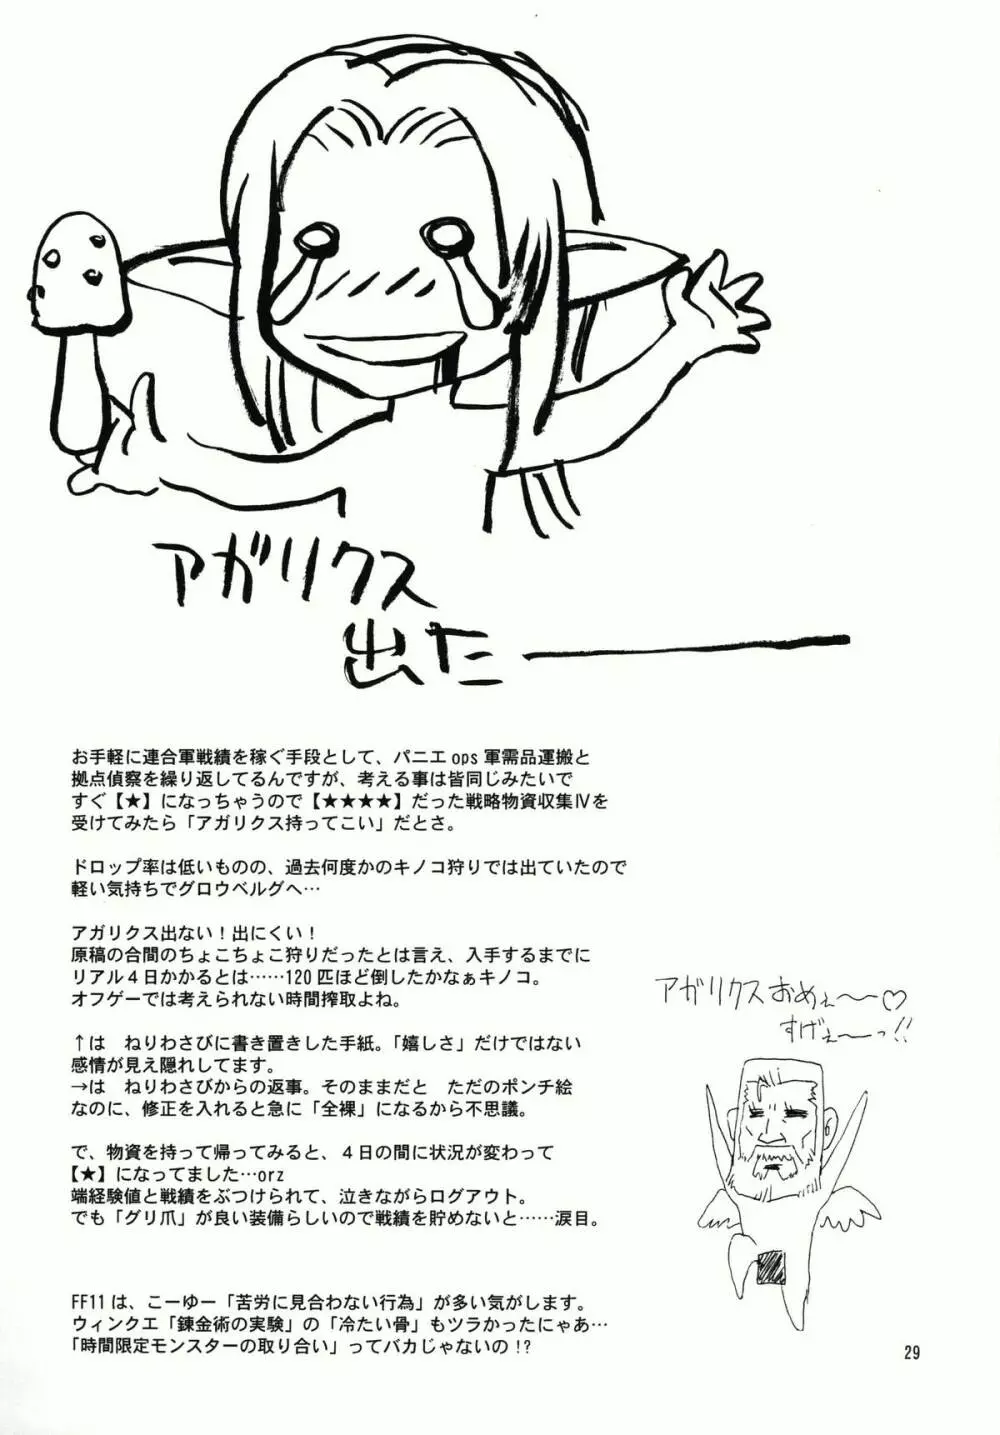 アガリクス
出たーーー
お手軽に連合軍戦績を稼ぐ手段として、パニエops軍需品運搬と
拠点偵察を繰り返してるんですが、考える事は皆同じみたいで
すぐ【★】になっちゃうので【★★★★】だった戦略物資収集Ⅳを
受けてみたら「アガリクス持ってこい」だとさ。
ドロップ率は低いものの、過去何度かのキノコ狩りでは出ていたので
軽い気持ちでグロウベルグへ…
アガリクス出ない！出にくい！
原稿の合間のちょこちょこ狩りだったとは言え、入手するまでに
リアル４日かかるとは……120匹ほど倒したかなぁキノコ。
オフゲーでは考えられない時間搾取よね。
↑は　ねりわさびに書き置きした手紙。「嬉しさ」だけではない
感情が見え隠れしてます。
→は　ねりわさびからの返事。そのままだと　ただのポンチ絵
なのに、修正を入れると急に「全裸」になるから不思議。
で、物資を持って帰ってみると、４日の間に状況が変わって
【★】になってました…orz
端経験値と戦績をぶつけられて、泣きながらログアウト。
でも「グリ爪」が良い装備らしいので戦績を貯めないと……涙目。
FF11は、こーゆー「苦労に見合わない行為」が多い気がします。
ウィンクエ「錬金術の実験」の「冷たい骨」もツラかったにゃあ…
「時間限定モンスターの取り合い」ってバカじゃないの!?
アガリクスおめぇ〜〜♡
すげぇ〜〜っ!!
29